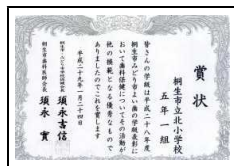 賞状
桐生市立北小学校
五年一組
皆さんの学級は平成二十八年度
桐生市みどり市よい歯の学級表彰に
おいて歯科保健についてその活動が
他の模範となる優秀なもので
ありましたのでこれを賞します
平成二十九年一月二十四日
須永吉信
桐生市歯科医師会長 須永實